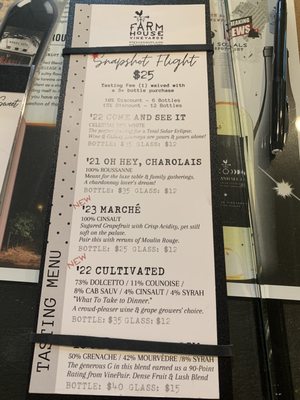 FARM
HOUSE
VINEYARDS
Snapshot Flight
$25
Tasting Fee (1) waived with
a 3+ bottle purchase
10% Discount - 6 Bottles
15% Discount - 12 Bottles
'22 COME AND SEE IT
WHITE
The perfect pairing for a Total Solar Eclipse.
BOTTLE: $35 GLASS: $12
'21 OH HEY, CHAROLAIS
100% ROUSSANNE
Meant for the luxe table & family gatherings.
A chardonnay lover's dream!
BOTTLE: $35 GLASS: $12
NEW
'23 MARCHÉ
100% CINSAUT
Sugared Grapefruit with Crisp Acidity, yet still
soft on the palate.
Pair this with reruns of Moulin Rouge.
BOTTLE: $25 GLASS: $12
NEW
'22 CULTIVATED
73% DOLCETTO / 11% COUNOISE /
8% CAB SAUV / 4% CINSAUT / 4% SYRAH
"What To Take to Dinner."
A crowd-pleaser wine & grape growers' choice.
BOTTLE: $35 GLASS: $12
50% GRENACHE / 42% MOURVÈDRE /8% SYRAH
The generous G in this blend earned us a 90-Point
Rating from VinePair. Dense Fruit & Lush Blend
BOTTLE: $40 GLASS: $15
TASTING MENU
BREAKING
NEWS